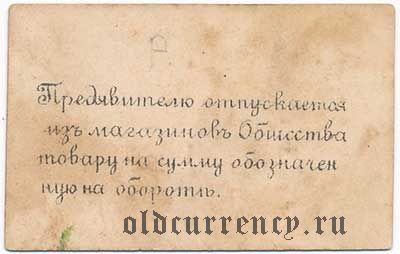 Предявителю отпускается
изъ магазиновъ Общества
товару на сумму обозначен
ную на оборотѣ.
oldcurrency.ru